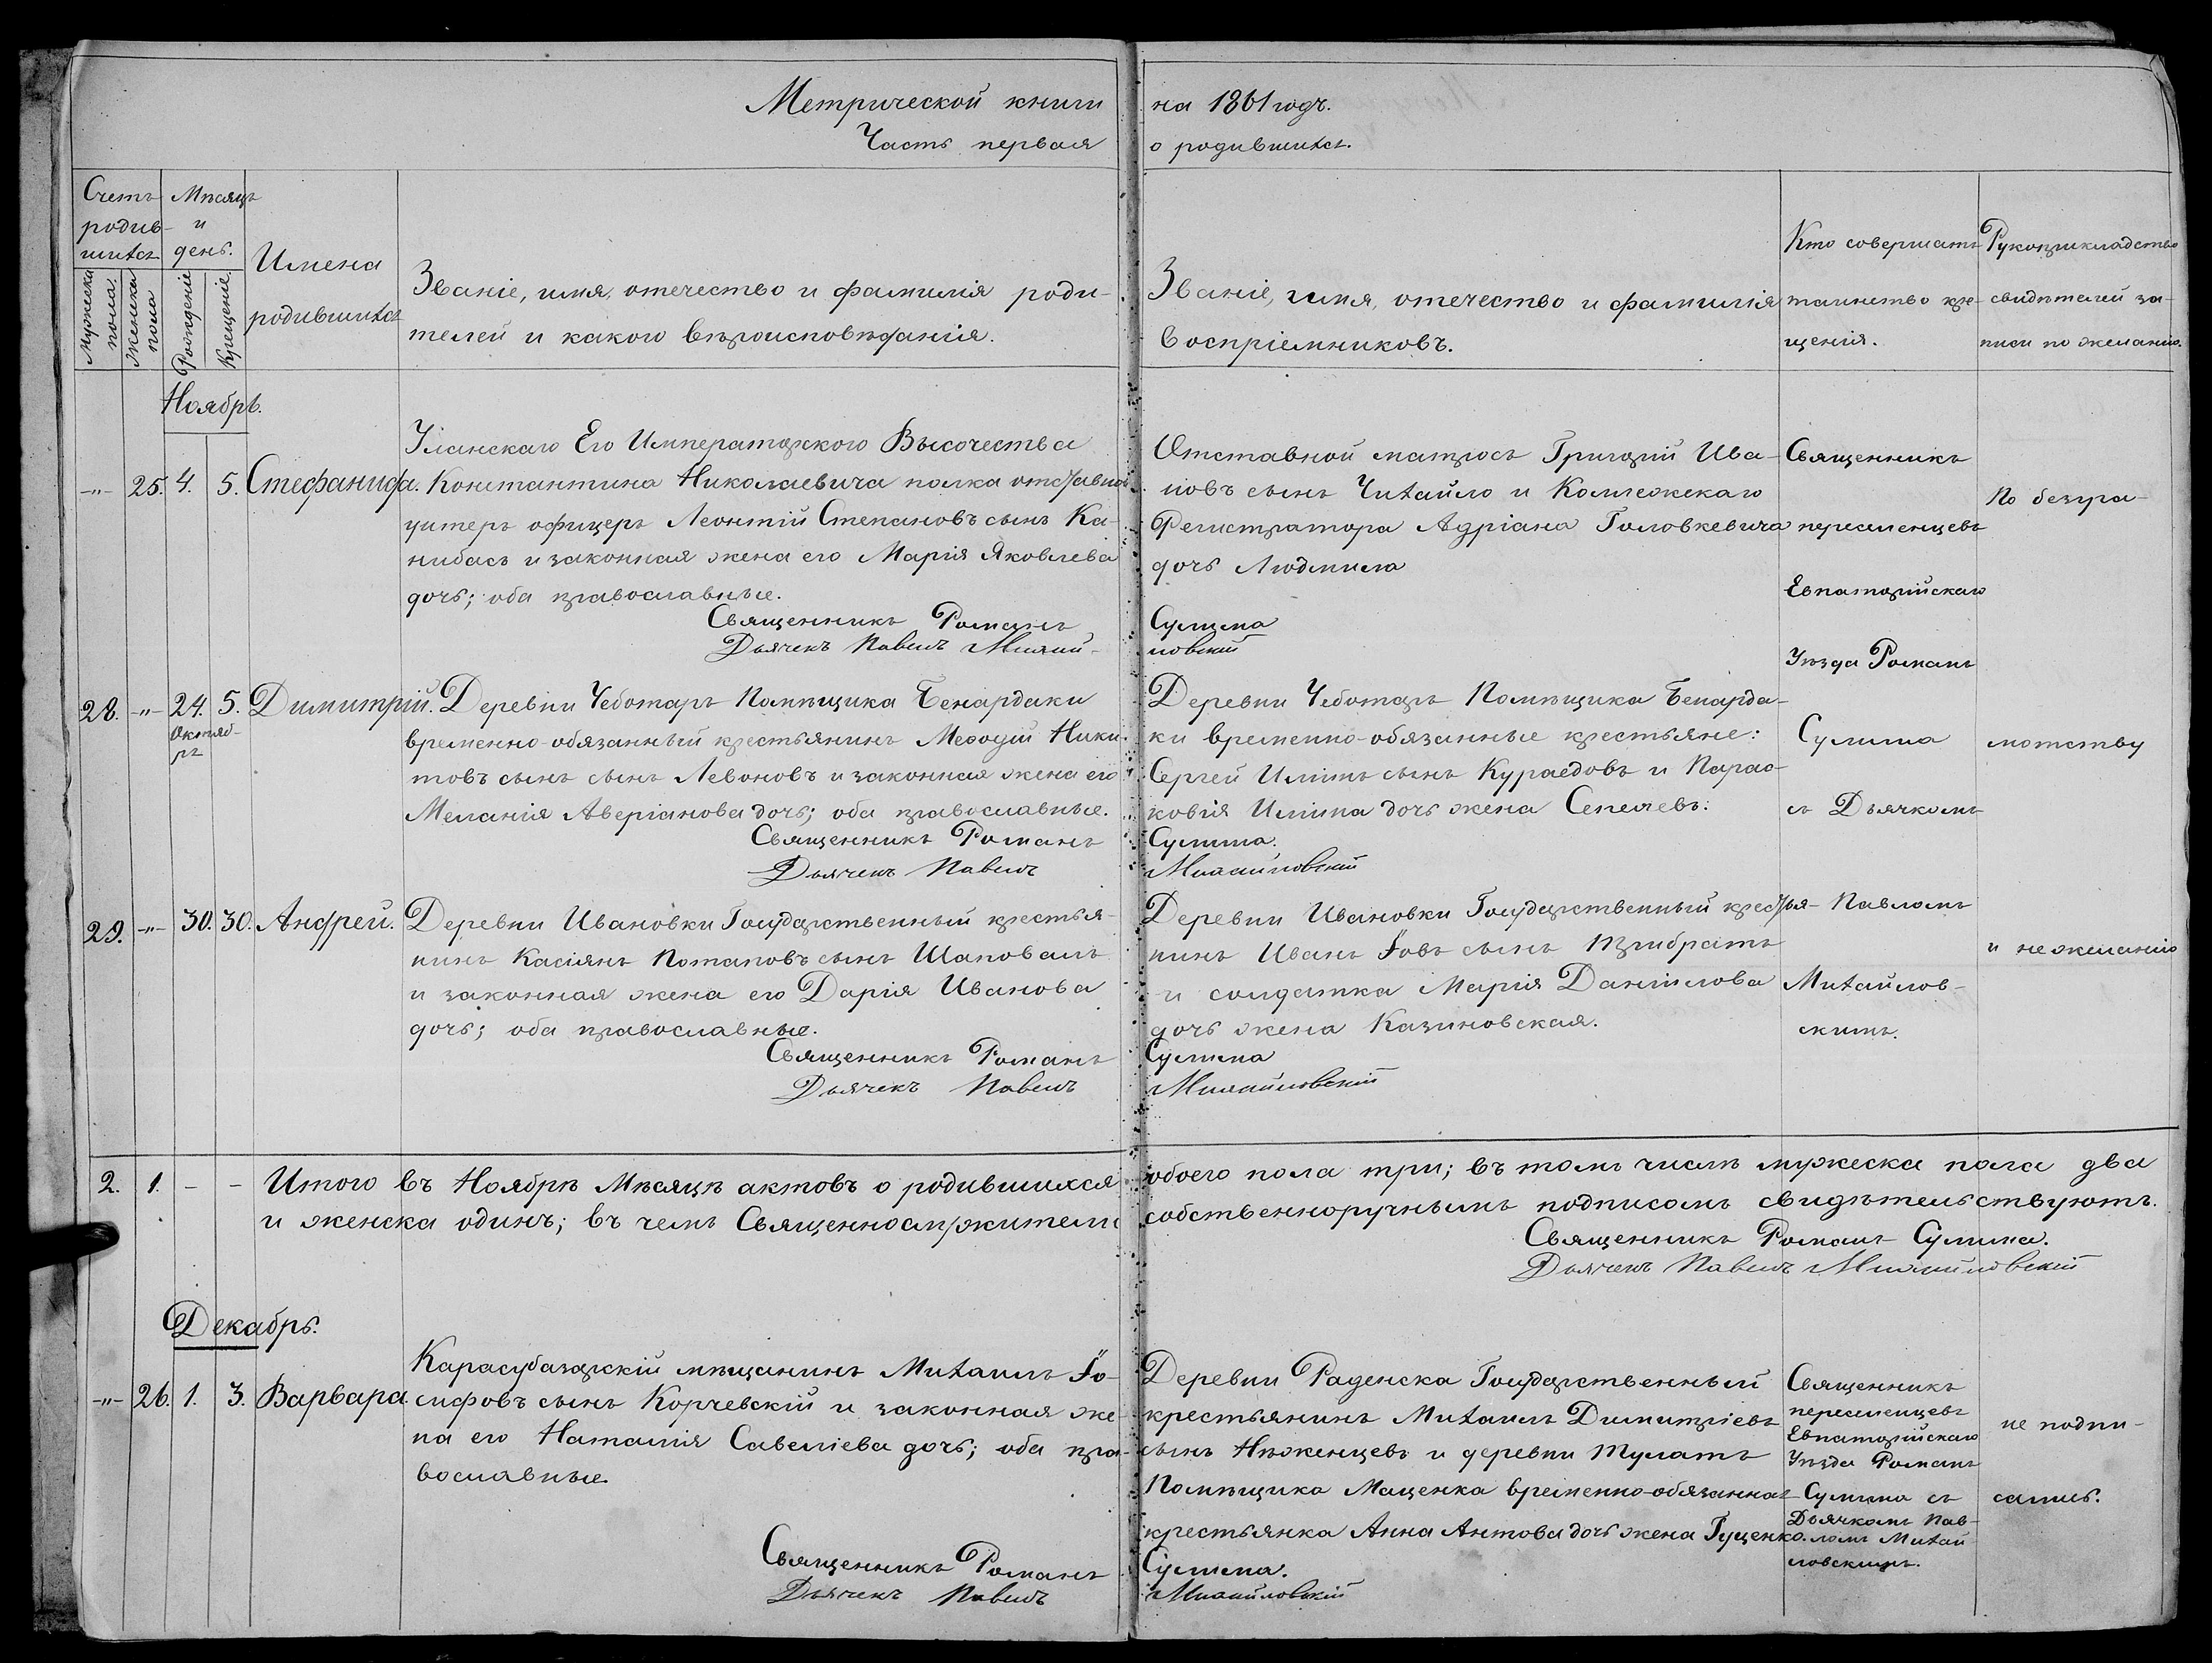 Метрической книги на 1861 годъ.
Часть первая о родившихся.
Счетъ родив- шихся
Мѣсяцъ и день.
Мужеска пола.
Женска пола
Рожденіе
Крещеніе.
Имена
родившихся
Званіе, имя, отечество и фамилія роди-
телей и какого вѣроисповѣданія.
Званіе, имя, отечество и фамилія
Воспріемниковъ.
Кто совершалъ
таинство кре-
щенія.
Рукоприкладство
свидѣтелей за-
писи по желанію.
Ноябрь.
-"- 25. 4. 5. Стефанида.
Уланскаго Его Императорского Высочества
Константина Николаевича полка отставной
унтеръ офицеръ Леонтій Степановъ сынъ Ка-
нибасъ и законная жена его Марія Яковлева
дочь; оба православные.
Священникъ Романъ
Дьячекъ Павелъ Михай-
Отставной матросъ Григорій Ива-
новъ сынъ Чихайло и Коллежскаго
Регистратора Адріана Головкевича
дочь Людмила
Сулима
ловскій
Священникъ
переселенцевъ
Евпаторійскаго
Уѣзда Романъ
Сулима
съ Дьячкомъ
Павломъ
Михайлов-
скимъ.
По безгра-
мотству
и не желанію
28. -"- 24. Октяб- рь 5. Димитрій.
Деревни Чеботаръ Помѣщика Бенардаки
временно-обязанный крестьянинъ Меѳодій Ники-
товъ сынъ сынъ Левоновъ и законная жена его
Меланія Аверіанова дочь; оба православные.
Священникъ Романъ
Дьячекъ Павелъ
Деревни Чеботаръ Помѣщика Бенарда-
ки временно-обязанные крестьяне:
Сергей Ильинъ сынъ Кураедовъ и Парас-
ковія Ильина дочь жена
Сулима.
Михайловскій
29. -"- 30. 30. Андрей.
Деревни Ивановки Государственный крестья-
нинъ Касіянъ Потаповъ сынъ Шаповалъ
и законная жена его Дарія Иванова
дочь; оба православные.
Священникъ Романъ
Дьячекъ Павелъ
Деревни Ивановки Государственный крестья-
нинъ Иванъ Іовъ сынъ
и солдатка Марія Даніилова
дочь жена Казиновская.
Сулима
Михайловскій
2. 1. - - Итого въ Ноябрѣ Мѣсяцѣ актовъ о родившихся обоего пола три; въ томъ числѣ мужеска пола два
и женска одинъ; въ чемъ Священнослужители собственноручнымъ подписомъ свидѣтельствуютъ.
Священникъ Романъ Сулима.
Дьячекъ Павелъ Михайловскій
Декабрь.
-"- 26. 1. 3. Варвара.
Карасубазарскій мѣщанинъ Михаилъ Іо-
сифовъ сынъ Корчевскій и законная же-
на его Наталія Савеліева дочь; оба пра-
вославные.
Священникъ Романъ
Дьячекъ Павелъ
Деревни Раденска Государственный
крестьянинъ Михаилъ Димитріевъ
сынъ Нѣженцевъ и деревни Тулатъ
Помѣщика Маценка временно-обязанная
крестьянка Анна Антова дочь жена Гуценко.
Сулима.
Михайловскій
Священникъ
переселенцевъ
Евпаторійскаго
Уѣзда Романъ
Сулима съ
Дьячкомъ Пав-
ломъ Михай-
ловскимъ.
не подпи-
сались.